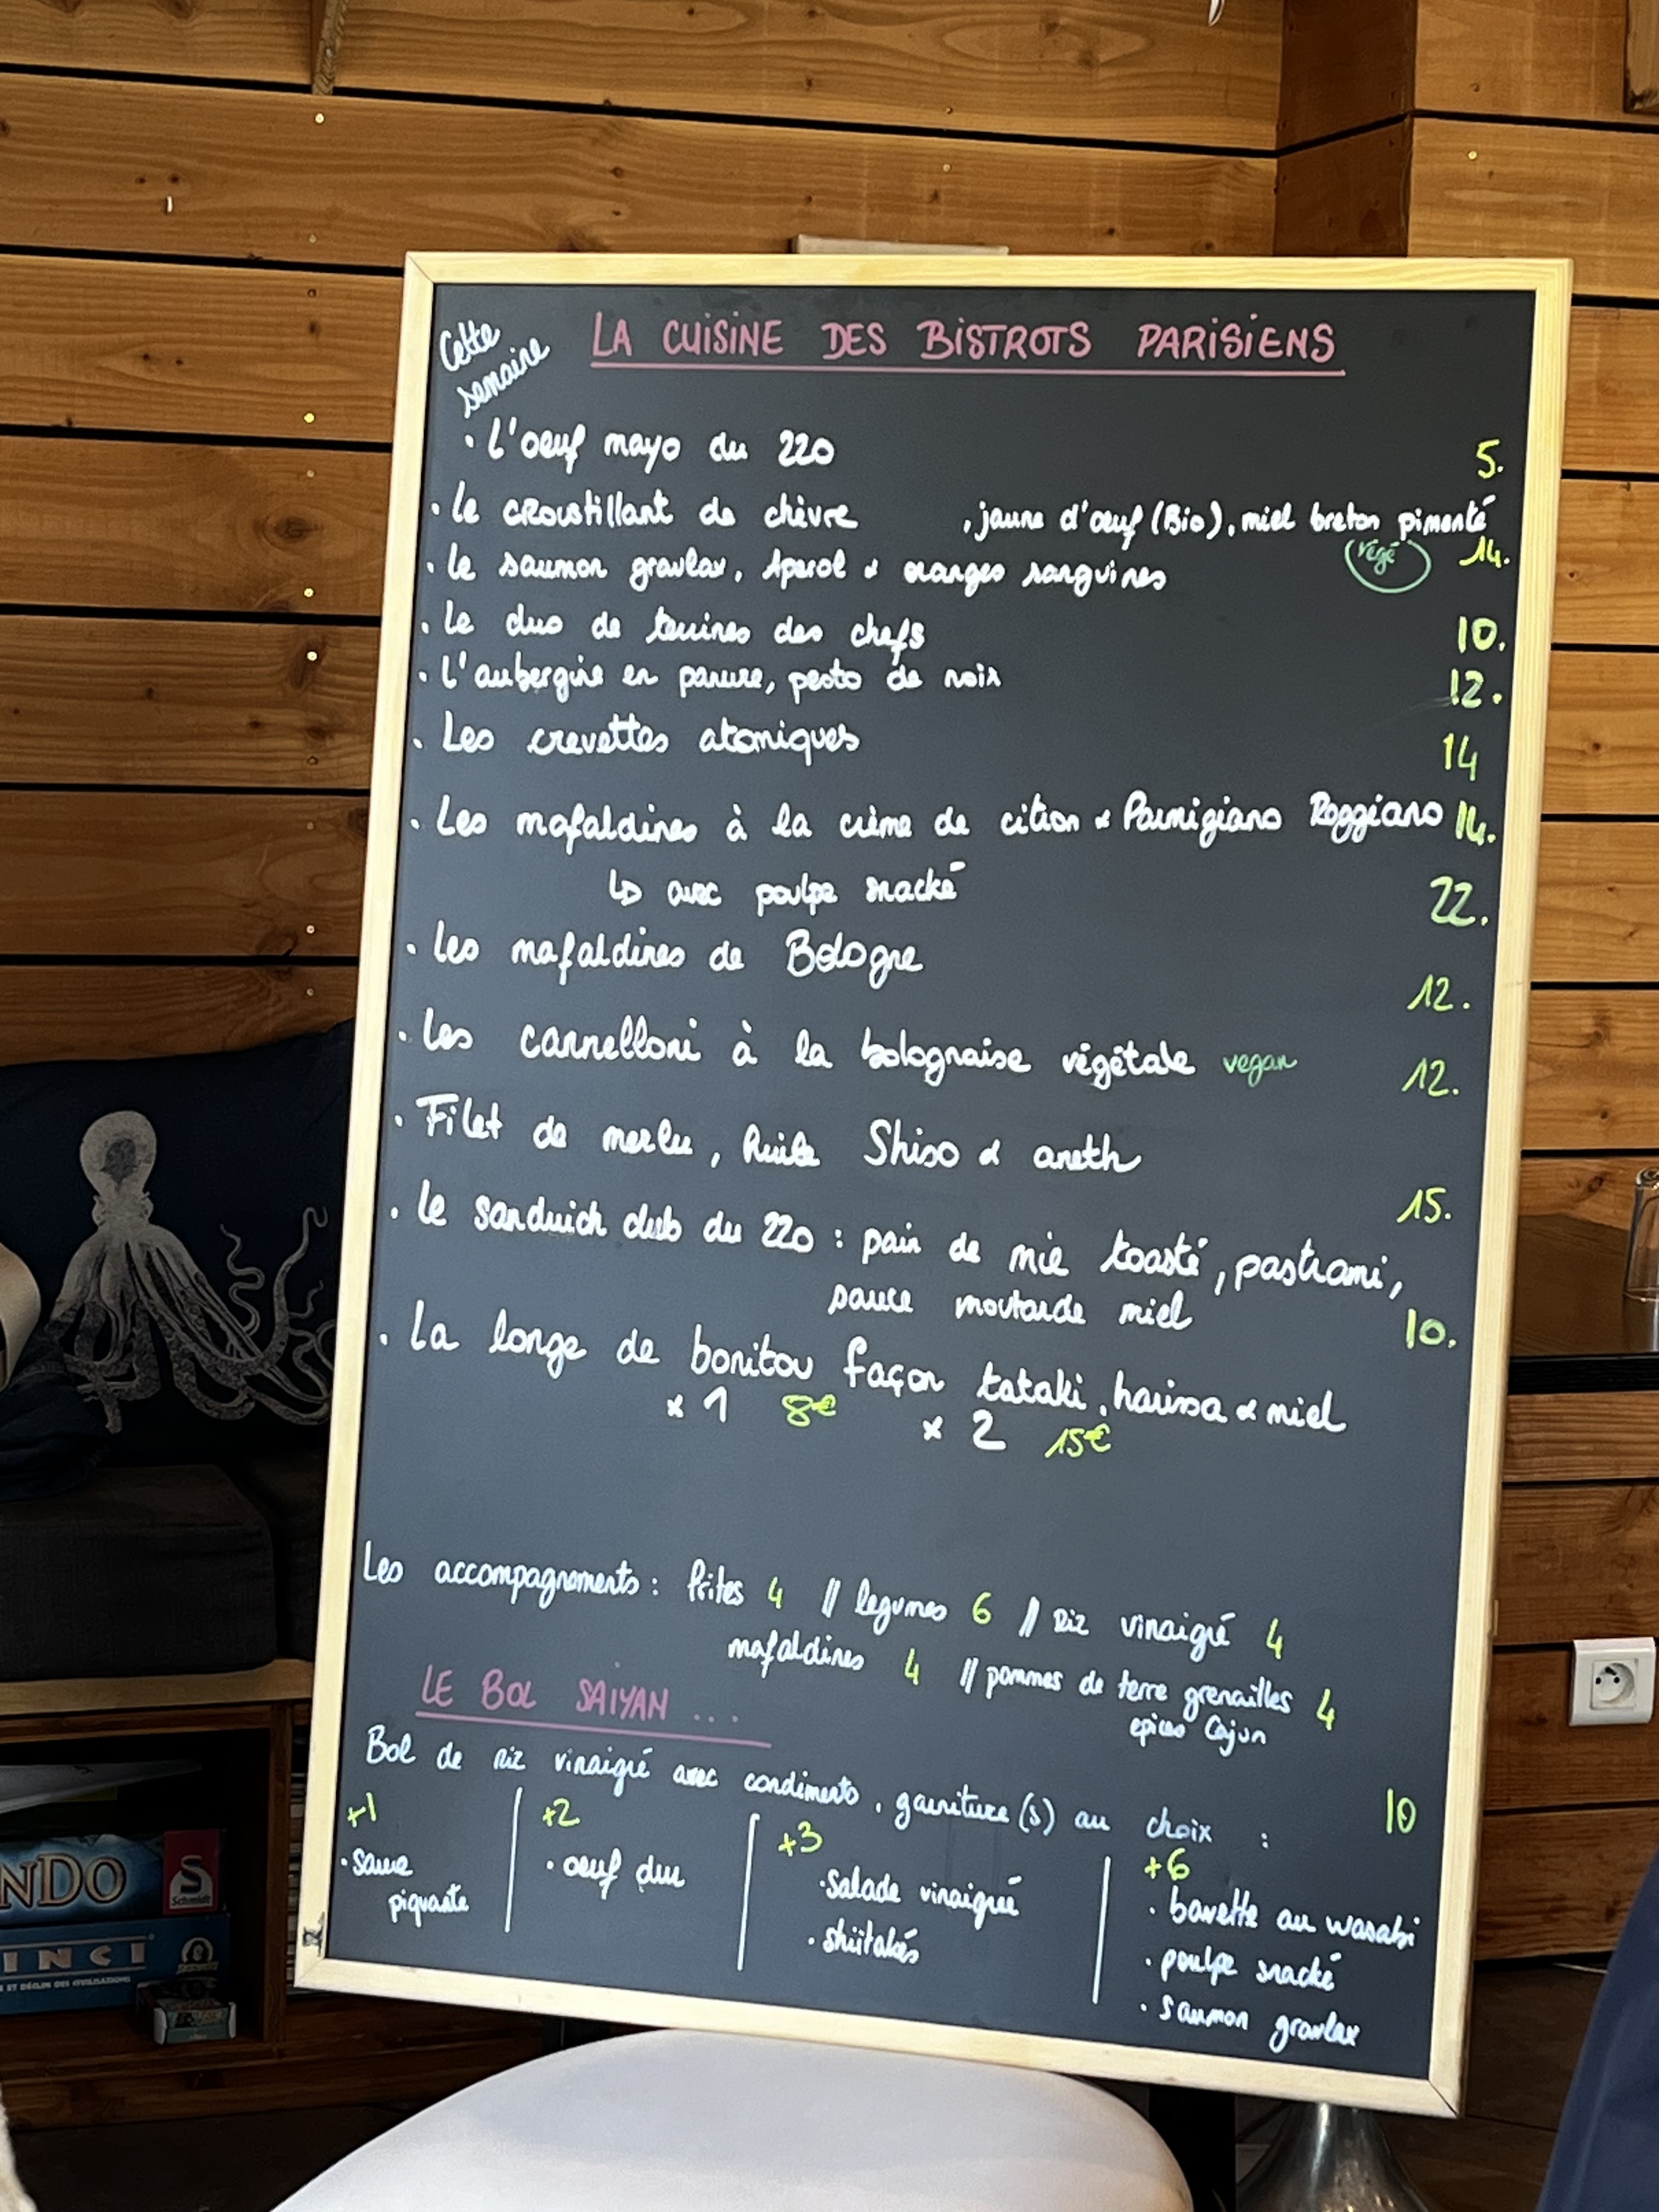 Cette semaine
LA CUISINE DES BISTROTS PARISIENS
· L'oeuf mayo du 220 5.
· Le croustillant de chèvre , jaune d'œuf (Bio), miel breton pimenté
végé 14.
· Le saumon gravlax, Aperol & oranges sanguines
· Le duo de terrines des chefs 10.
· L'aubergine en parure, pesto de noix 12.
· Les crevettes atomiques 14
· Les mafaldines à la crème de citron & Parmigiano Reggiano 14.
↳ avec poulpe snacké 22.
· Les mafaldines de Bologne 12.
· Les cannelloni à la bolognaise végétale vegan 12.
· Filet de merlu, huile Shiso & aneth 15.
· Le sandwich club du 220 : pain de mie toasté, pastrami,
sauce moutarde miel 10.
· La longe de bonitou façon tataki, harissa & miel
x 1 8€ x 2 15€
Les accompagnements : frites 4 // legumes 6 // Riz vinaigré 4
mafaldines 4 // pommes de terre grenailles 4
epices Cajun
LE BOL SAIYAN ...
Bol de riz vinaigré avec condiments, garniture(s) au choix : 10
+1
· Sauce
piquante
+2
· oeuf dur
+3
· Salade vinaigrée
· shiitakés
+6
· bavette au wasabi
· poulpe snacké
· saumon gravlax
NDO
Schmidt
INCI